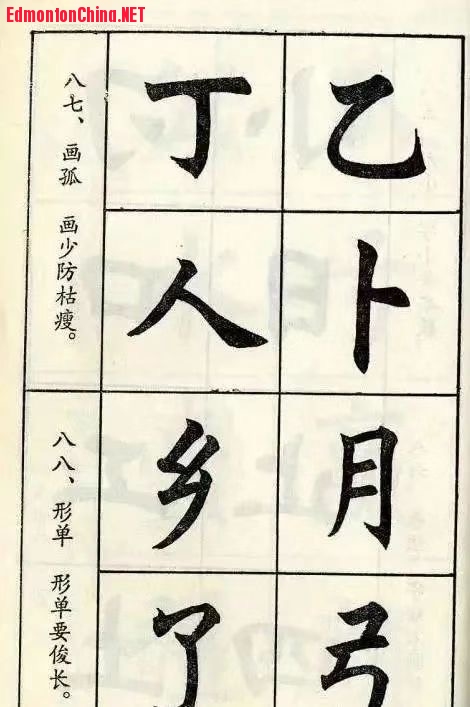 EdmontonChina.NET
八七、画孤 画少防枯瘦。
乙丁
卜人
八八、形单 形单要俊长。
月乡
弓了